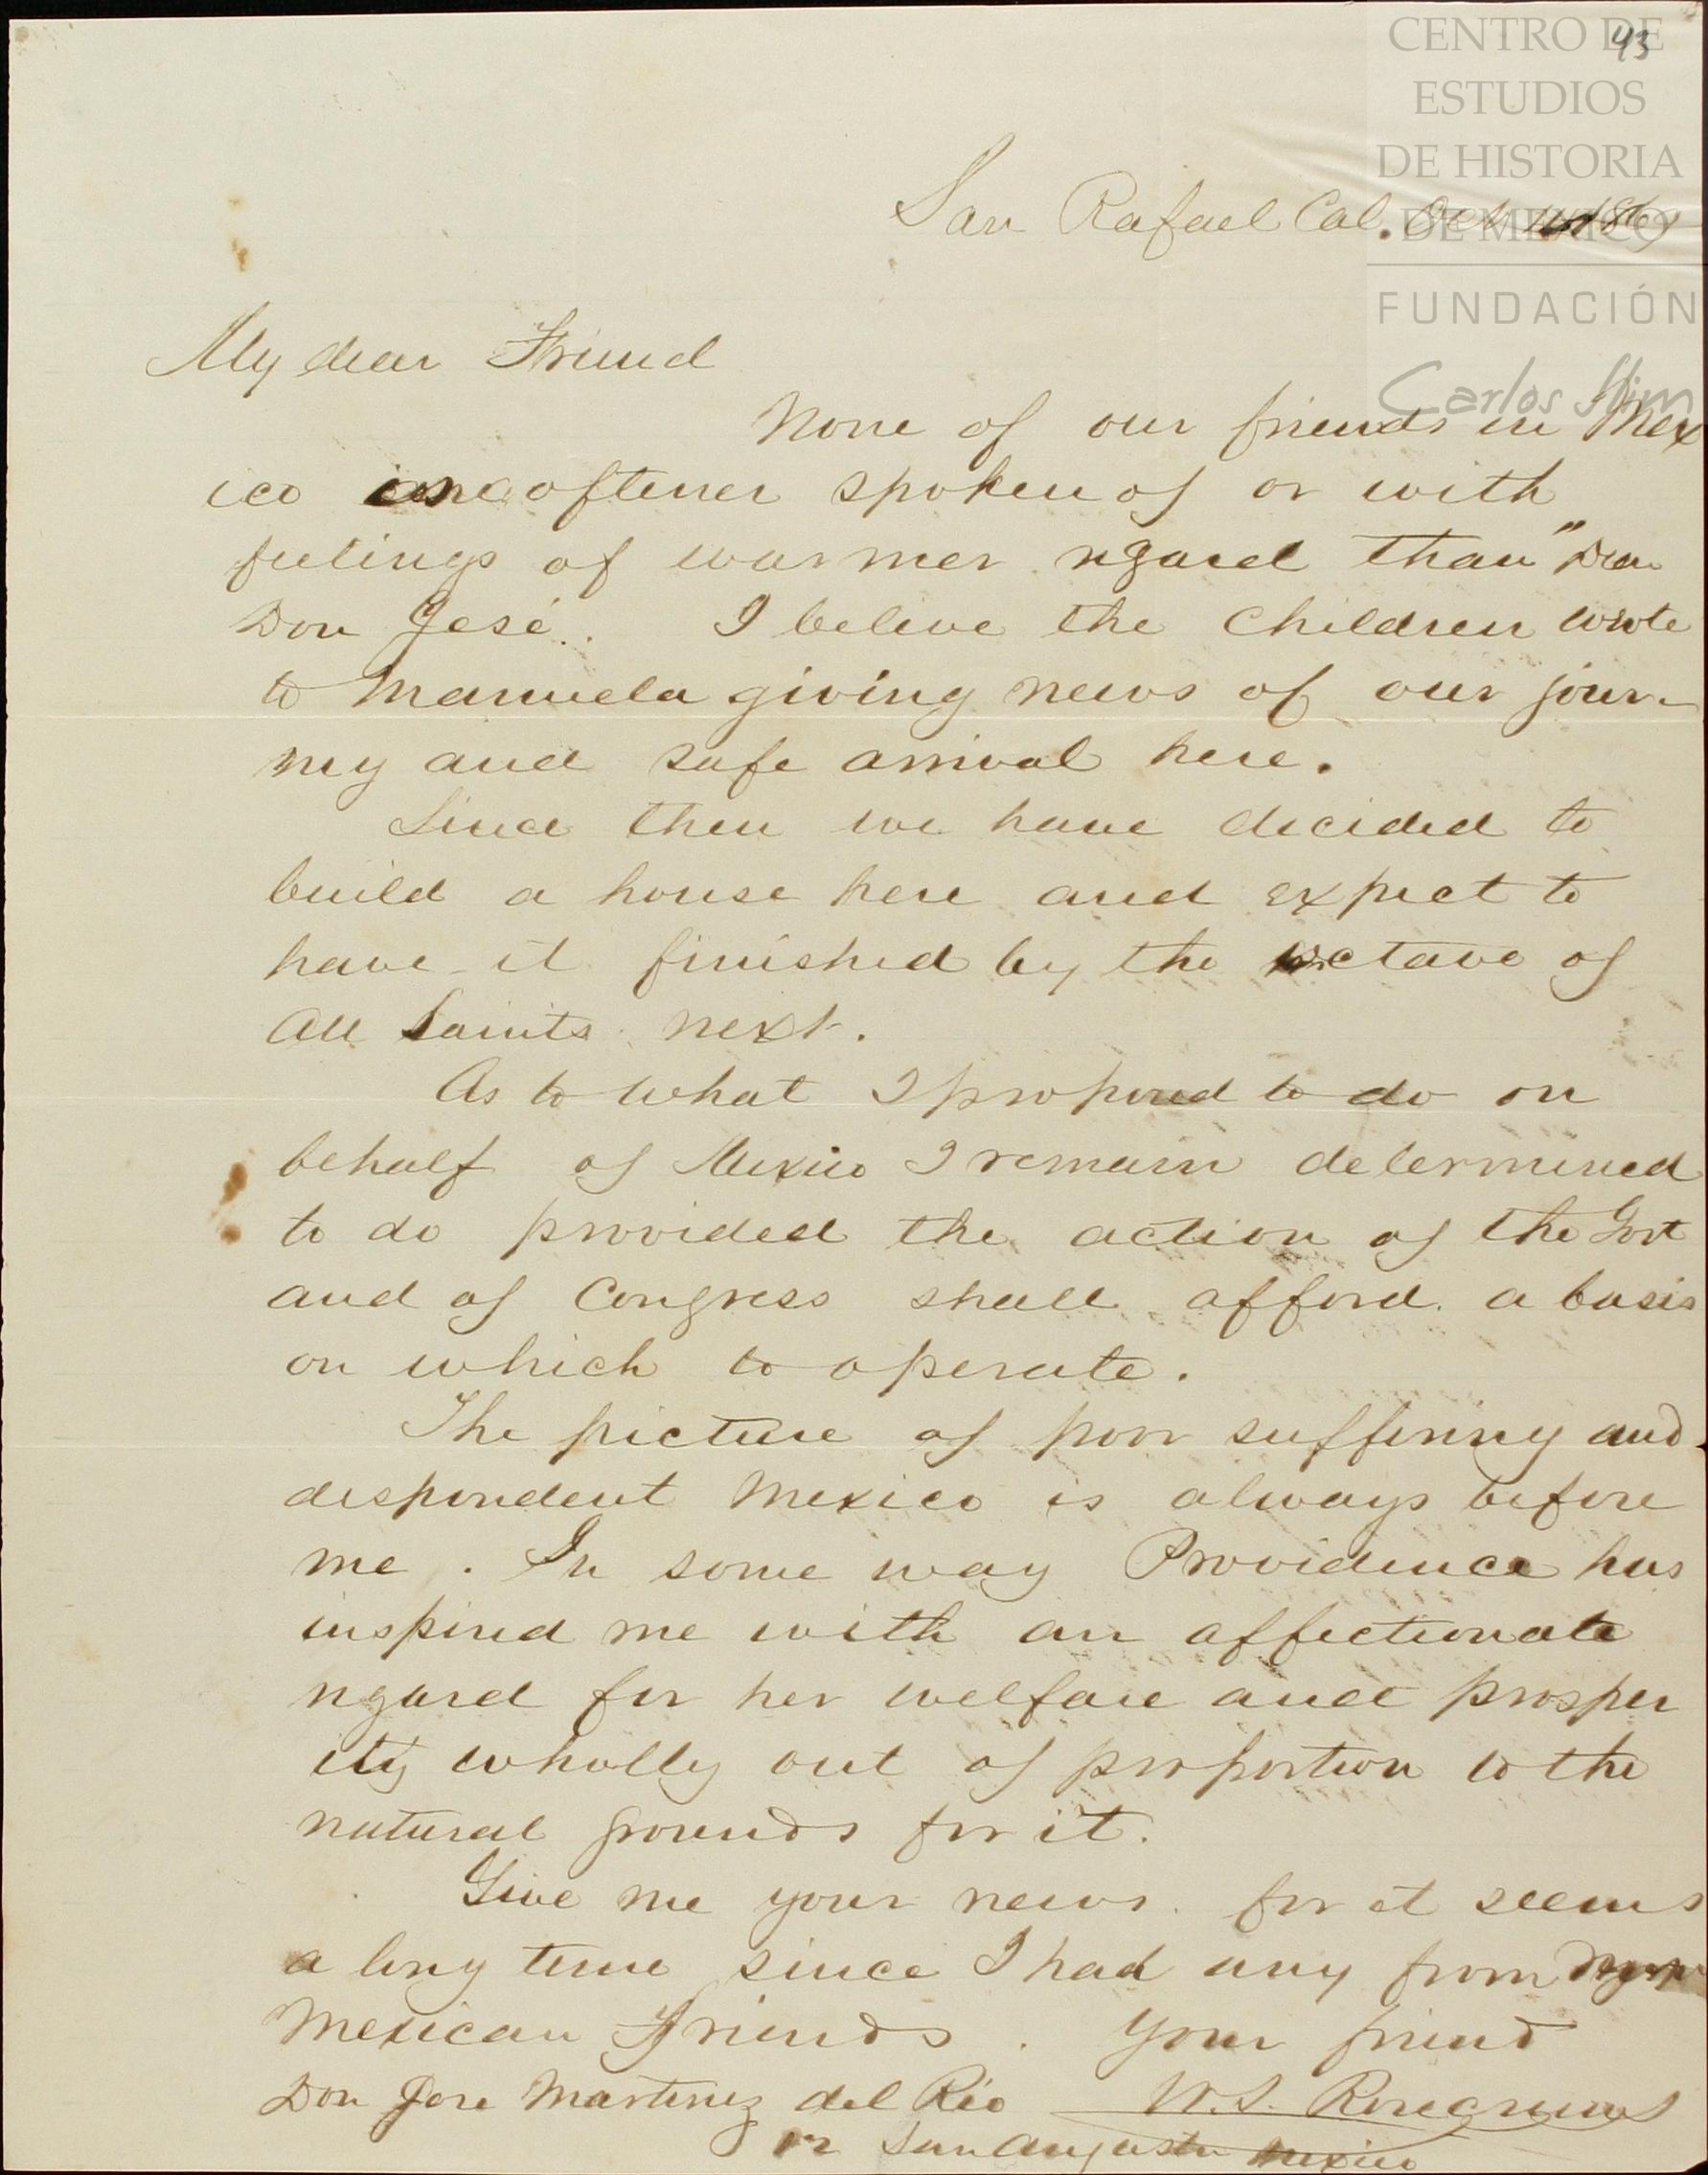 43
CENTRO DE
ESTUDIOS
DE HISTORIA
DE MEXICO
FUNDACIÓN
Carlos Slim
San Rafael Cal. Oct 1869
My dear Friend
None of our friends in Mex
ico are oftener spoken of or with
feelings of warmer regard than "Dear
Don José. I believe the children wrote
to Manuela giving news of our jour-
ney and safe arrival here.
Since then we have decided to
build a house here and expect to
have it finished by the octave of
All Saints next.
As to what I proposed to do on
behalf of Mexico I remain determined
to do provided the action of the Govt
and of Congress shall afford a basis
on which to operate.
The picture of poor suffering and
despondent Mexico is always before
me. In some way Providence has
inspired me with an affectionate
regard for her welfare and prosper
ity wholly out of proportion to the
natural grounds for it.
Give me your news for it seems
a long time since I had any from my
Mexican Friends. Your friend
Don Jose Martinez del Rio W.S. Rosecrans
San Augustin Mexico